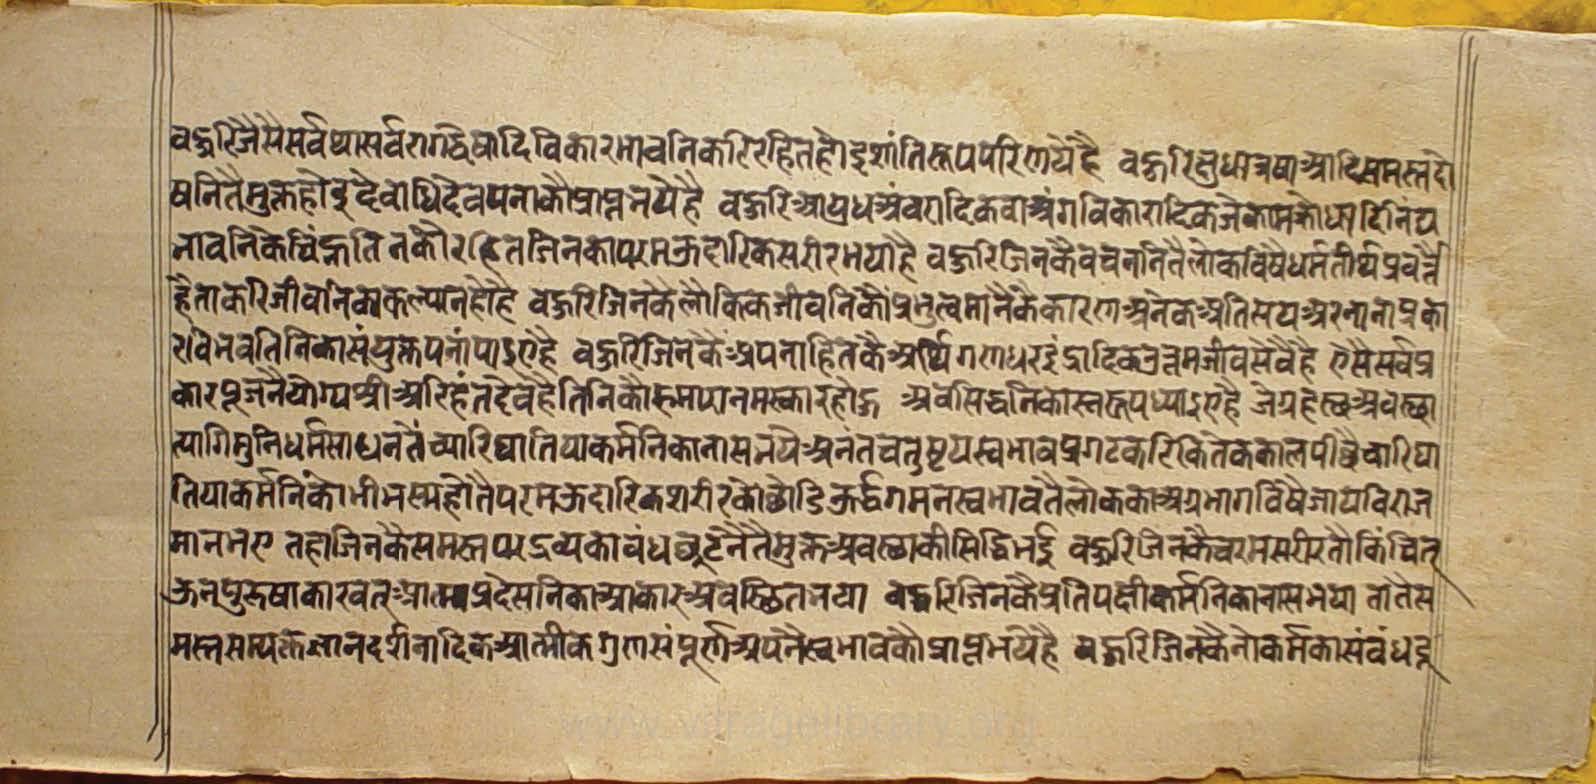 बहुरि जैसे सर्वथा सर्व रागद्वेषादि विकारभावनिकरि रहित होइ शांतिरूप परिणए है बहुरि क्षुधा तृषा आदि समस्त दो
षनितै मुक्त होइ देवाधिदेवपनाकौ प्राप्त भये है बहुरि आयुध अंबरादिक वा अंगविकारादिक जे काम क्रोधादि निंद्य
भावनिके चिह्न तिनकौ रहित जिनका परम ऊदारिक सरीर भया है बहुरि जिनकै वचननितै लोक विषै धर्मतीर्थ प्रवर्त्तै
है ताकरि जीवनिका कल्यान हो है बहुरि जिनकै लौकिक जीवनिकौ प्रभुत्व मानैके कारण अनेक अतिसय अर नाना प्रका
र विभव तिनिका संयुक्तपनां पाइए है बहुरि जिनकै अपना हितकै अर्थि गणधर इंद्रादिक उत्तम जीव सेवै है ऐसे सर्व प्र
कार पूजनै योग्य श्री अरिहंत देव है तिनिकौ हमारा नमस्कार होऊ अब सिद्धनिको स्वरूप ध्याइए है जे ग्रहस्थ अवस्था
त्यागि मुनिधर्म साधनतै च्यारि घातिया कर्मनिका नास भये अनंत चतुष्टय स्वभाव प्रगट करि कितेक काल पीछै च्यारि घा
तिया कर्मनिको भी भस्म होतै परम ऊदारिक शरीरको छोडि ऊर्द्धगमन स्वभावतै लोकका अग्रभाग विषै जाय विराज
मान भए तहा जिनकै समस्त परद्रव्यका बंध छूटनैतै मुक्त अवस्थाकी सिद्धि भई बहुरि जिनकै चरम सरीरतै किंचित्
ऊन पुरूषाकारवत् आत्मप्रदेसनिका आकार अवस्थित भया बहुरि जिनकै प्रतिपक्षी कर्मनिका नास भया तातै स
मस्त सम्यक्त ज्ञान दर्शनादिक आत्मीक गुण संपूर्ण अपनै स्वभावकौ प्राप्त भये है बहुरि जिनकै नोकर्मका संबंध दू
www.vitragelibrary.org